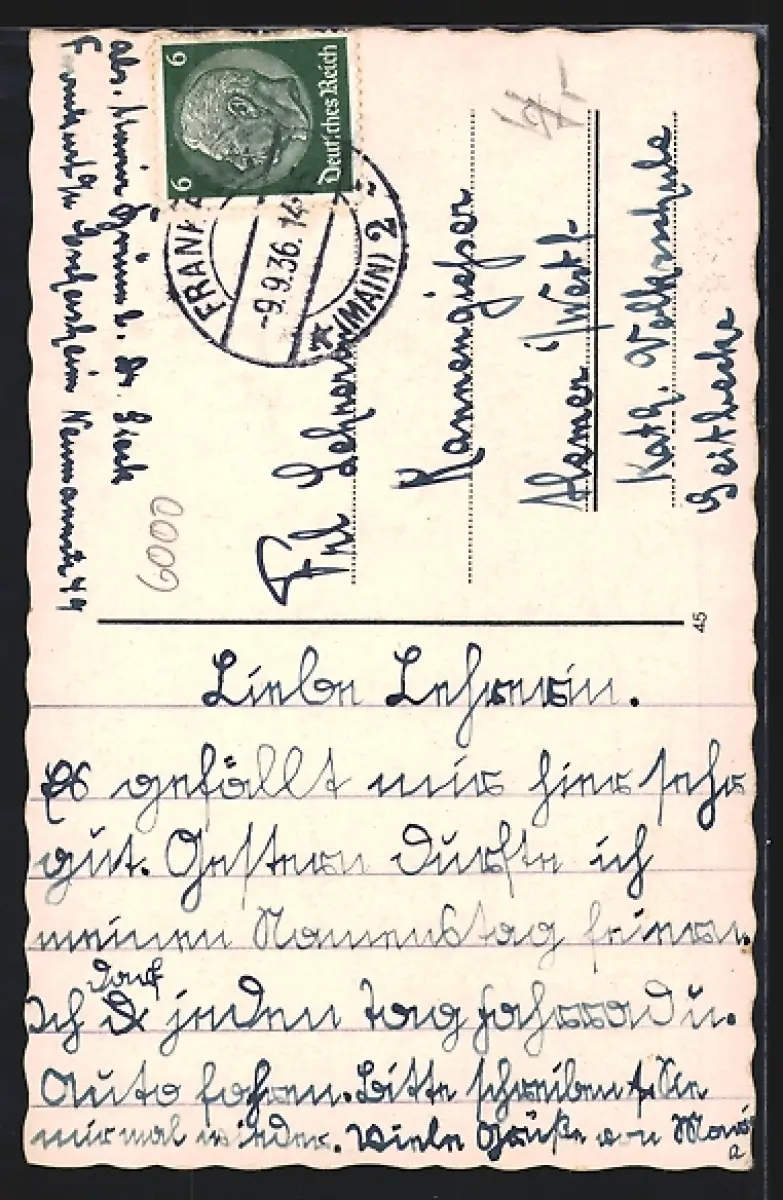 6 6
Deutsches Reich
FRANKF (MAIN) 2
-9.9.36.14-
6000
Frl Lehrerin
Kannengießer
Hemer i/Westf.
Kath. Volksschule
45
Liebe Lehrerin.
Es gefällt mir hier sehr
gut. Gestern durfte ich
meinen Namenstag feiern.
Ich darf jeden Tag Fahrrad u.
Auto fahren. Bitte schreiben Sie
mir mal wieder. Viele Grüße von Mari
a